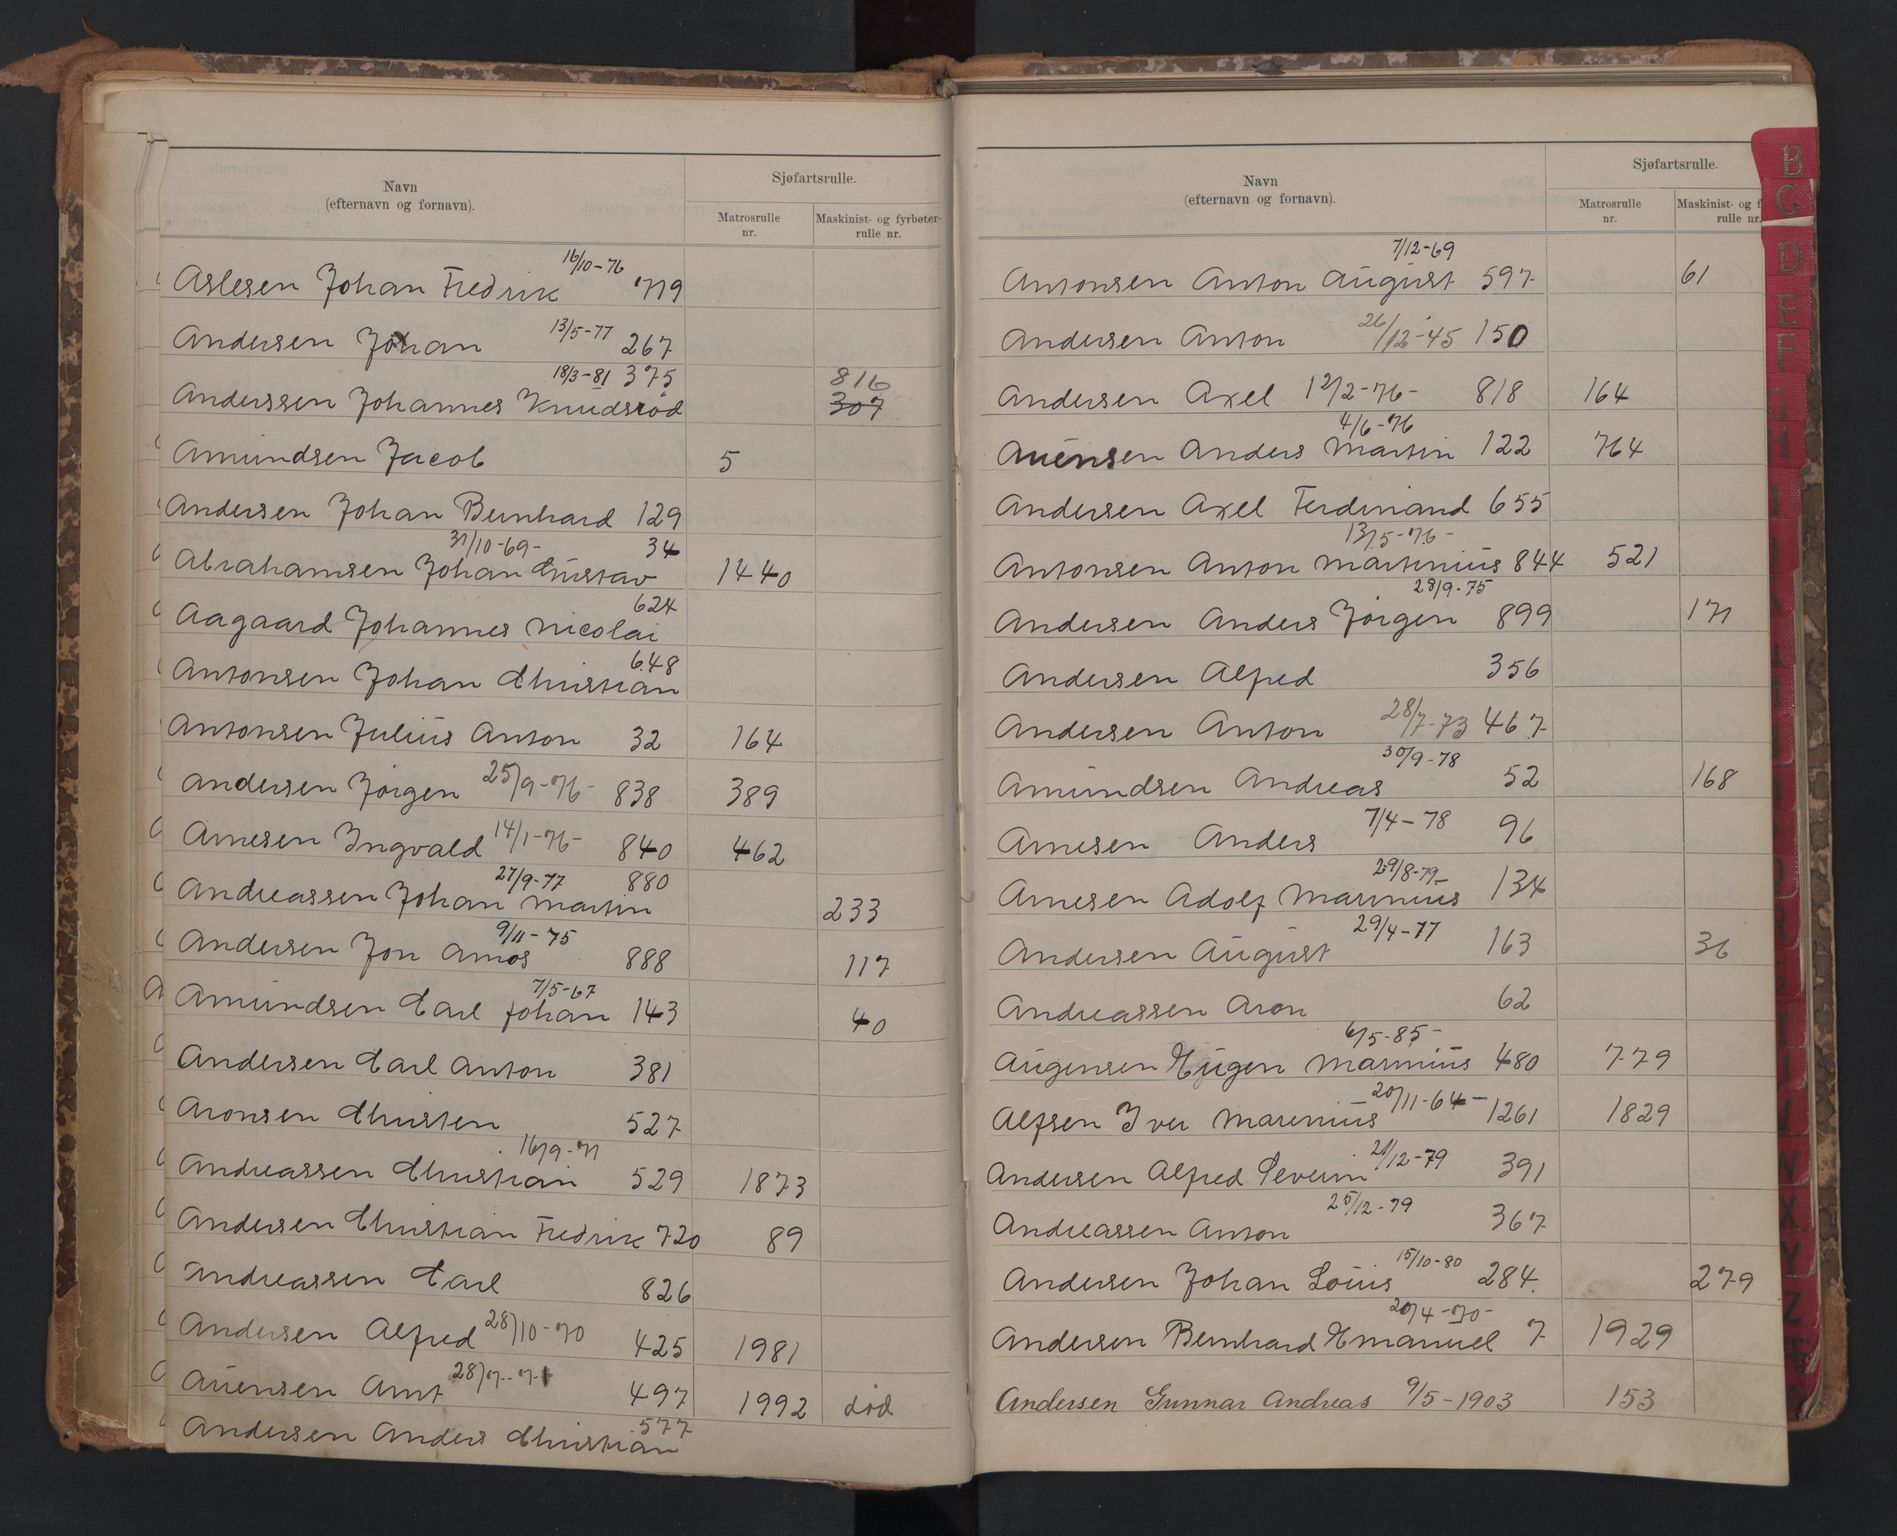 Navn
(efternavn og fornavn).
Sjøfartsrulle.
Matrosrulle
nr.
Maskinist- og fyrbøter-
rulle nr.
16/10-76
Aslesen Johan Fredrik 719
13/5-77
Andersen Johan 267
18/3-81 375 816
Anderssen Johannes Knudsrød 307
Amundsen Jacob 5
Andersen Johan Bernhard 129
31/10-69- 34
Abrahamsen Johan Gustav 1440
624
Aagaard Johannes Nicolai
648
Antonsen Johan Christian
Antonsen Julius Anton 32 164
Andersen Jørgen 25/9-76- 838 389
Arnesen Ingvald 14/1-76- 840 462
27/9-77 880
Andreassen Johan Martin 233
9/11-75
Andersen Jon Amos 888 117
7/5-67
Amundsen Carl Johan 143 40
Andersen Carl Anton 381
Aronsen Christen 527
16/9-71
Andreassen Christian 529 1873
Andersen Christian Fredrik 720 89
Andreassen Carl 826
Andersen Alfred 28/10-70 425 1981
Auensen Amt 28/7-71 497 1992 død
577
Andersen Anders Christian
Navn
(efternavn og fornavn).
Sjøfartsrulle.
Matrosrulle
nr.
Maskinist- og f
rulle nr.
7/12-69
Antonsen Anton August 597 61
Andersen Anton 26/12-45 150
Andersen Axel 12/2-76- 818 164
4/6-76
Auensen Anders Martin 122 764
Andersen Axel Ferdinand 655
13/5-76-
Antonsen Anton Martinius 844 521
28/9-75
Andersen Anders Jørgen 899 171
Andersen Alfred 356
Andersen Anton 28/7-73 467
30/9-78
Amundsen Andreas 52 168
Arnesen Anders 7/4-78 96
29/8-79-
Arnesen Adolf Marinius 134
29/4-77
Andersen August 163 36
Andreassen Aron 62
6/5-85-
Augensen Eugen Marinius 480 779
20/11-64-
Alfsen Iver Marenius 1261 1829
21/12-79
Andersen Alfred Severin 391
25/12-79
Andreassen Anton 367
15/10-80
Andersen Johan Louis 284. 279
20/4-70-
Andersen Bernhard Emanuel 7 1929
Andersen Gunnar Andreas 9/5-1903 153
B
C
D
E
F
N
X
Y
Z